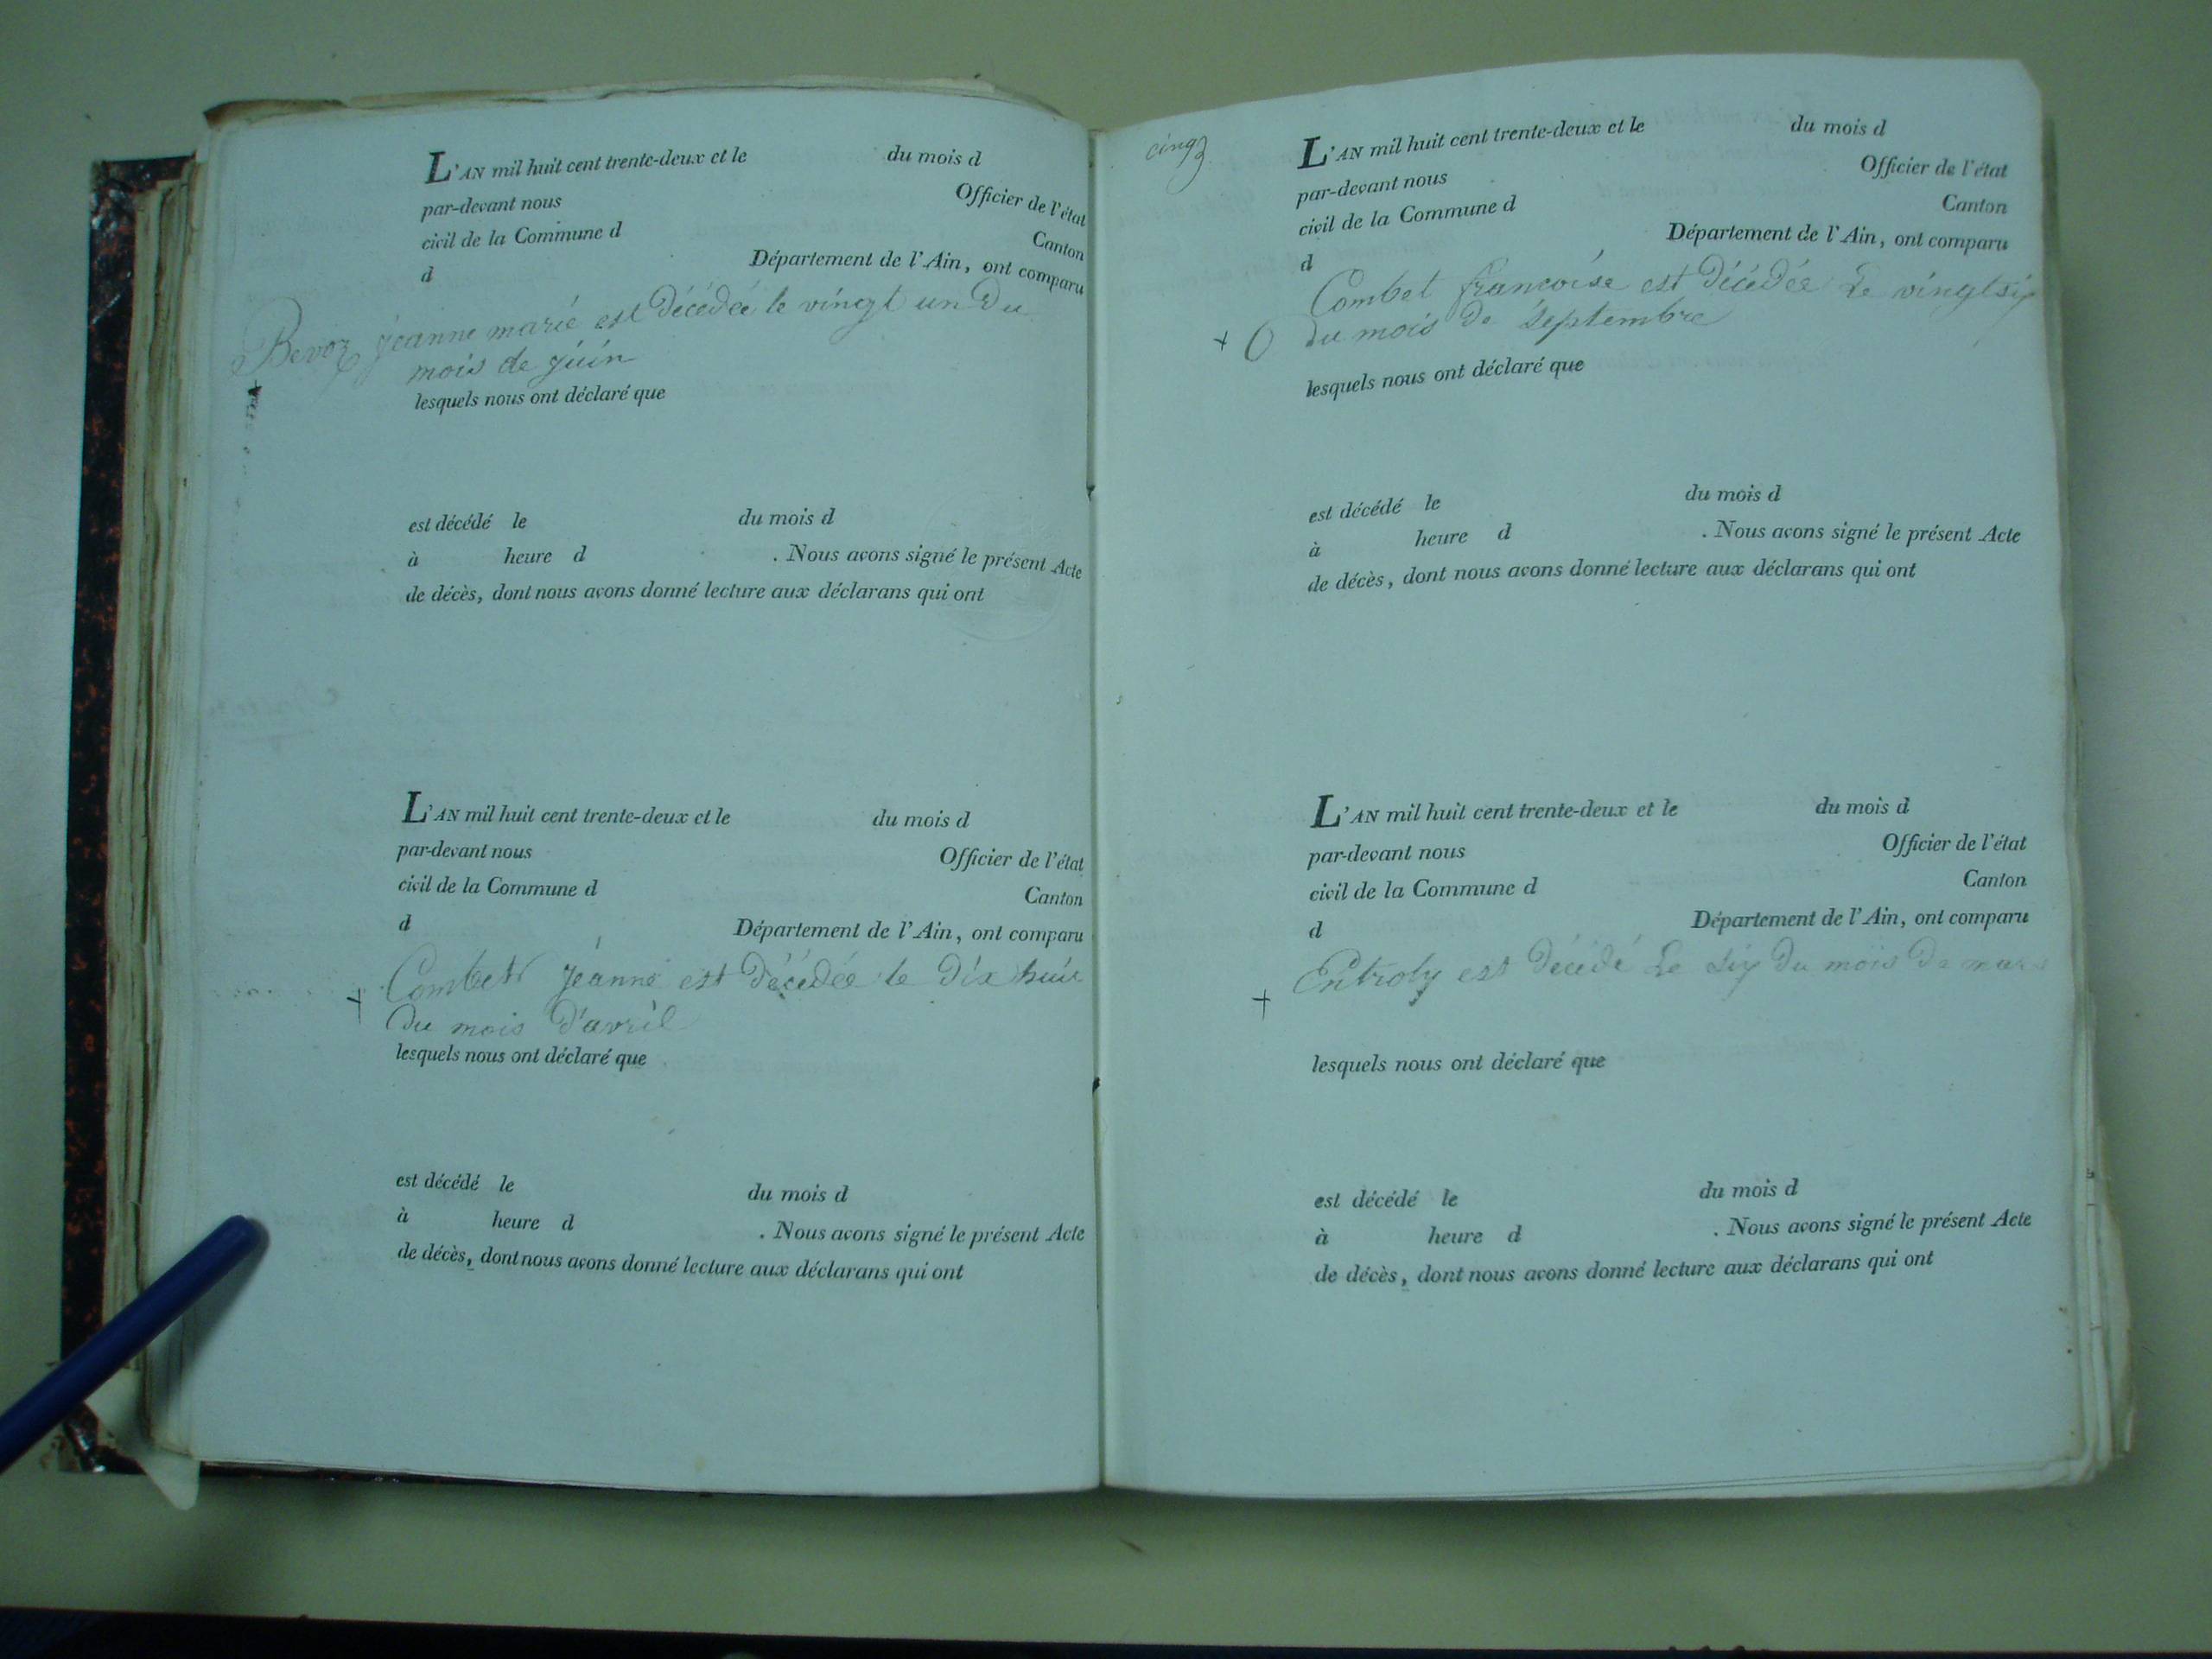 L'AN mil huit cent trente-deux et le du mois d
par-devant nous Officier de l'état
civil de la Commune d Canton
d Département de l'Ain, ont comparu
Bevoz jeanne marie est décédée le vingt un du
mois de juin
lesquels nous ont déclaré que
est décédé le du mois d
à heure d . Nous avons signé le présent Acte
de décès, dont nous avons donné lecture aux déclarans qui ont
L'AN mil huit cent trente-deux et le du mois d
par-devant nous Officier de l'état
civil de la Commune d Canton
d Département de l'Ain, ont comparu
+ Combet jeanne est décédée le dix huit
du mois d'avril
lesquels nous ont déclaré que
est décédé le du mois d
à heure d . Nous avons signé le présent Acte
de décès, dont nous avons donné lecture aux déclarans qui ont
cinq
L'AN mil huit cent trente-deux et le du mois d
par-devant nous Officier de l'état
civil de la Commune d Canton
d Département de l'Ain, ont comparu
Combet francoise est décédée Le vingt six
+ du mois de septembre
lesquels nous ont déclaré que
est décédé le du mois d
à heure d . Nous avons signé le présent Acte
de décès, dont nous avons donné lecture aux déclarans qui ont
L'AN mil huit cent trente-deux et le du mois d
par-devant nous Officier de l'état
civil de la Commune d Canton
d Département de l'Ain, ont comparu
+ Entroly est décédé Le six du mois de mars
lesquels nous ont déclaré que
est décédé le du mois d
à heure d . Nous avons signé le présent Acte
de décès, dont nous avons donné lecture aux déclarans qui ont